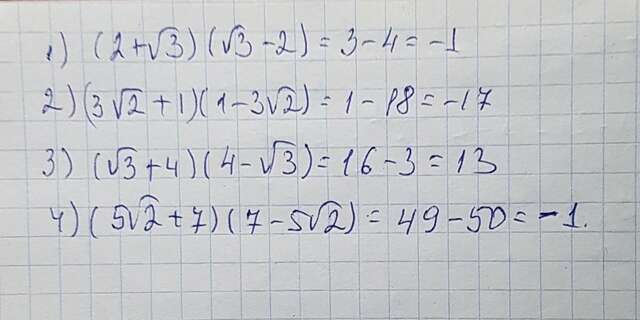 1) (2+√3)(√3-2)=3-4=-1
2) (3√2+1)(1-3√2)=1-18=-17
3) (√3+4)(4-√3)=16-3=13
4) (5√2+7)(7-5√2)=49-50=-1.